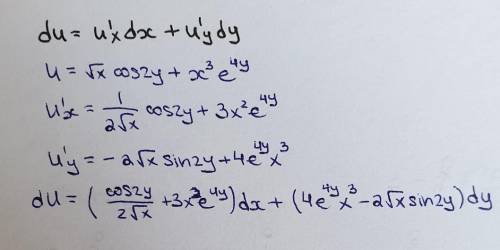 du = u'x dx + u'y dy
u = √x cos2y + x³ e^4y
u'x = 1/(2√x) cos2y + 3x² e^4y
u'y = -2√x sin2y + 4e^4y x³
du = (cos2y/(2√x) + 3x² e^4y) dx + (4e^4y x³ - 2√x sin2y) dy